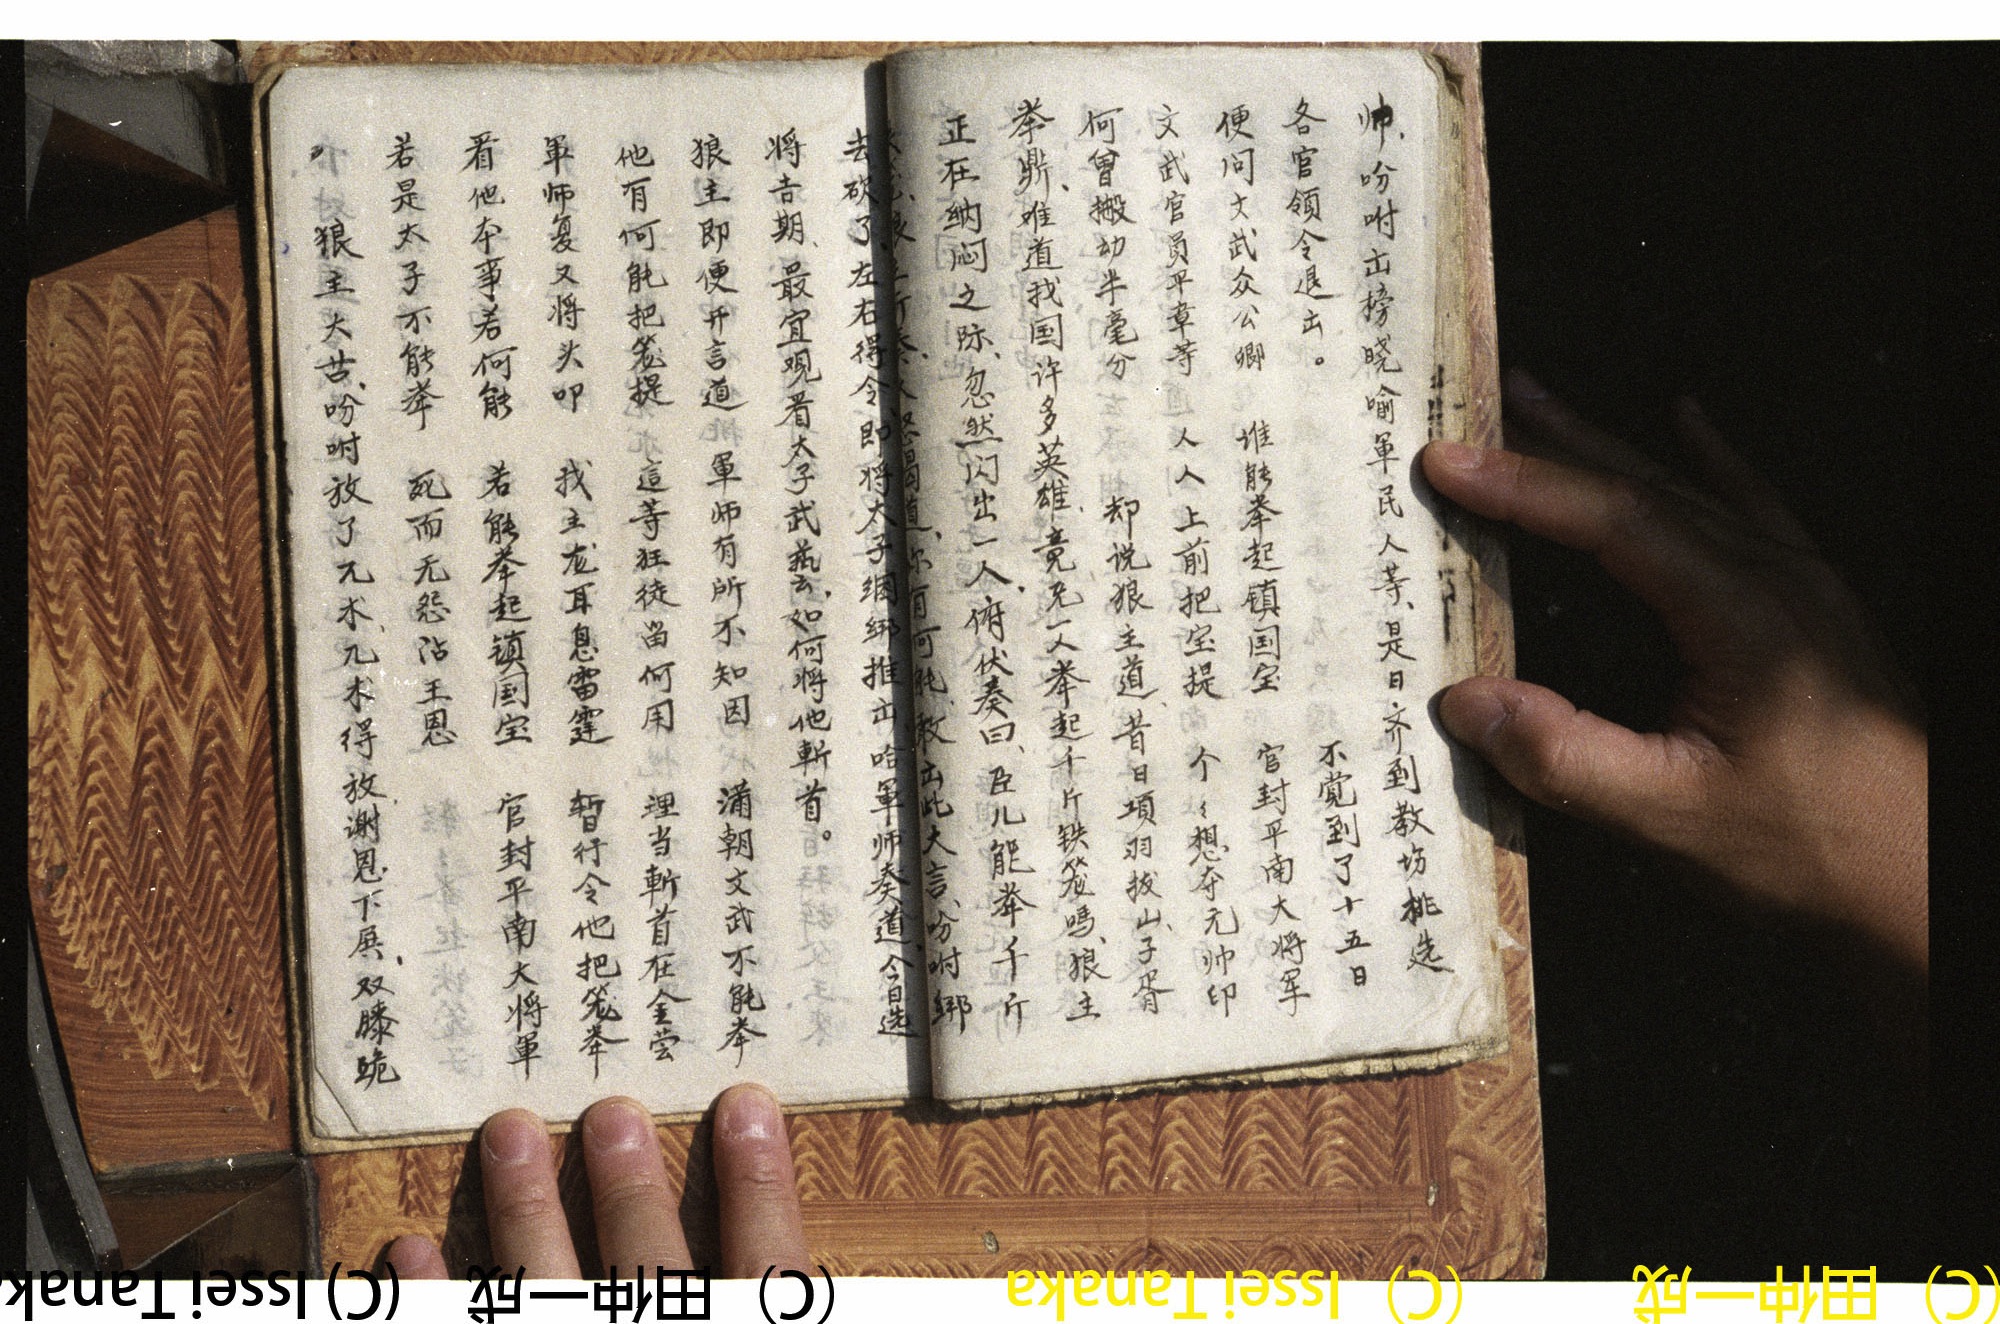 帅、吩咐出榜晓喻軍民人等、是日齐到教坊挑选
各官領令退出。 不觉到了十五日
便问文武众公卿 谁能举起镇国宝 官封平南大将军
文武官员平章等 人人上前把宝提 个々想夺元帅印
何曾搬动半毫分 却说狼主道、昔日項羽拔山、子胥
举鼎、难道我国许多英雄、竟无一人举起千斤铁笼嗎、狼主
正在纳闷之际、忽然闪出一人、俯伏奏曰、臣儿能举千斤
大怒喝道、你有何能、敢出此大言、吩咐綁
去砍了、左右得令、即将太子綑綁推出 哈軍师奏道、今日选
将吉期、最宜观看太子武藝、如何将他斬首。
狼主即便开言道 軍师有所不知因 满朝文武不能举
他有何能把笼提 這等狂徒留何用 理当斬首在金
軍师复又将头叩 我主龙耳息雷霆 暫行令他把笼举
看他本事若何能 若能举起镇国宝 官封平南大将軍
若是太子不能举 死而无怨沾王恩
狼主大苦、吩咐放了兀术、兀术得放、谢恩下展、双膝跪
(C) 田仲一成 (C) Issei Tanaka
(C) 田仲一成 (C) Issei Tanaka